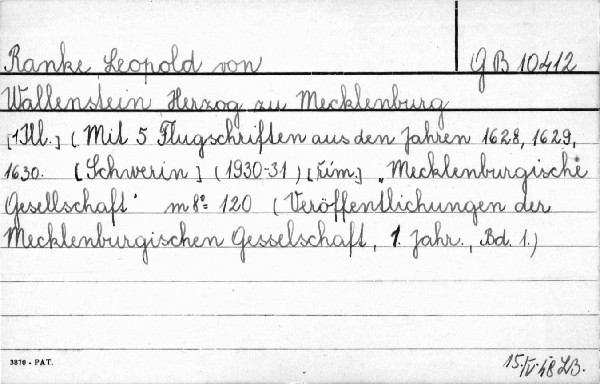 Ranke Leopold von GB 10412
Wallenstein Herzog zu Mecklenburg
[1Ill.] (Mit 5 Flugschriften aus den Jahren 1628, 1629,
1630. [Schwerin] (1930-31) [kim.] „Mecklenburgische
Gesellschaft" m8° 120 (Veröffentlichungen der
Mecklenburgischen Gesselschaft, 1. Jahr., Bd. 1.)
3870 - PAT. 15./IV.48 LB.